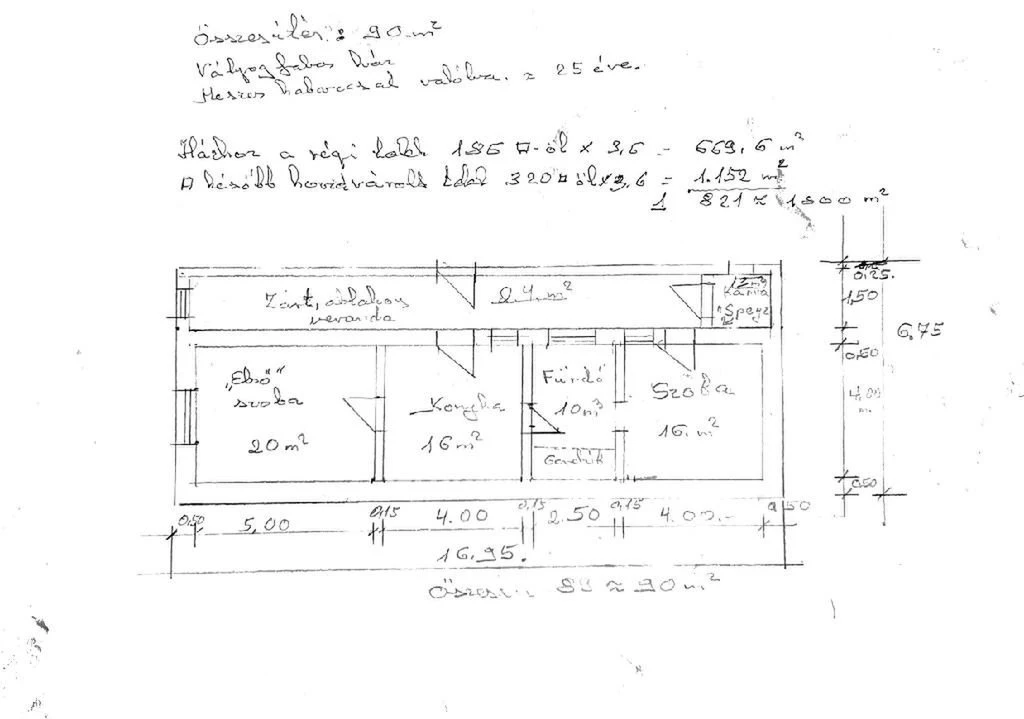 Összesítés: 90 m²
Vályogfalas ház
Meszes habarccsal valólva. ≈ 25 éve.
Házhoz a régi telek 186 □-öl × 3,6 = 669,6 m²
A később hozzávásárolt telek 320 □ öl × 3,6 = 1.152 m²
1 821 ≈ 1800 m²
Zárt, ablakos veranda
2.4. m²
Kamra
"Speiz"
"Első" szoba
20 m²
Konyha
16 m²
Fürdő
10 m³
Szoba
16. m²
0,25.
1,50
0,50
4,00 m.
0,50
6.75
0,50
5,00
0,15
4.00
0,15
2.50
0,15
4.00.-
0,50
16.95.
Összesen: 89 ≈ 90 m²